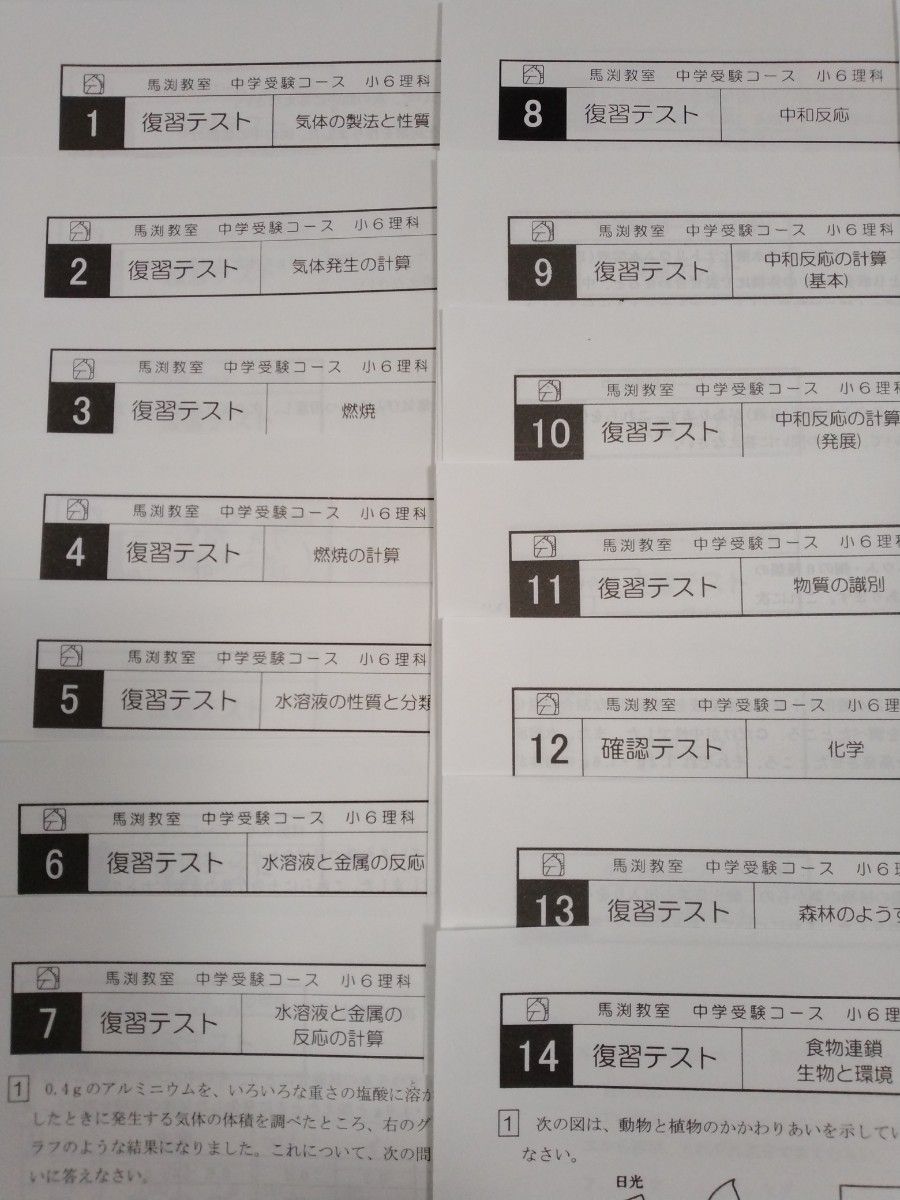 馬渕教室 中学受験コース 小6理科
1 復習テスト 気体の製法と性質
馬渕教室 中学受験コース 小6理科
2 復習テスト 気体発生の計算
馬渕教室 中学受験コース 小6理科
3 復習テスト 燃焼
馬渕教室 中学受験コース 小6理科
4 復習テスト 燃焼の計算
馬渕教室 中学受験コース 小6理科
5 復習テスト 水溶液の性質と分類
馬渕教室 中学受験コース 小6理科
6 復習テスト 水溶液と金属の反応
馬渕教室 中学受験コース 小6理科
7 復習テスト 水溶液と金属の
反応の計算
1 0.4gのアルミニウムを、いろいろな重さの塩酸に溶か
したときに発生する気体の体積を調べたところ、右のグ
ラフのような結果になりました。これについて、次の問
いに答えなさい。
馬渕教室 中学受験コース 小6理科
8 復習テスト 中和反応
馬渕教室 中学受験コース 小6理科
9 復習テスト 中和反応の計算
(基本)
馬渕教室 中学受験コース 小6理科
10 復習テスト 中和反応の計算
(発展)
馬渕教室 中学受験コース 小6理科
11 復習テスト 物質の識別
馬渕教室 中学受験コース 小6理
12 確認テスト 化学
馬渕教室 中学受験コース 小6
13 復習テスト 森林のようす
馬渕教室 中学受験コース 小6理
14 復習テスト 食物連鎖
生物と環境
1 次の図は、動物と植物のかかわりあいを示してい
なさい。
日光